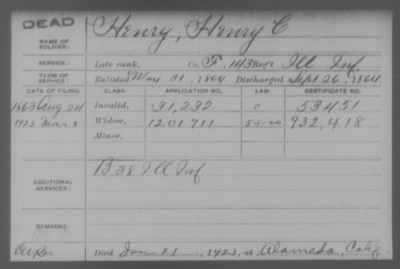 DEAD
NAME OF SOLDIER: Henry, Henry C
SERVICE: Late rank, Co. F, 113 Reg't Ill Inf
TERM OF SERVICE: Enlisted May 31, 1864 Discharged Sept 26, 1864
DATE OF FILING. CLASS. APPLICATION NO. LAW. CERTIFICATE NO.
1863 Aug 24 Invalid, 31,232 53451
1923 Mar 5 Widow, 1201711 932,418
Minor,
ADDITIONAL SERVICES: B 38 Ill Inf
REMARKS:
Died Jan 21, 1923, at Alameda, Calif.